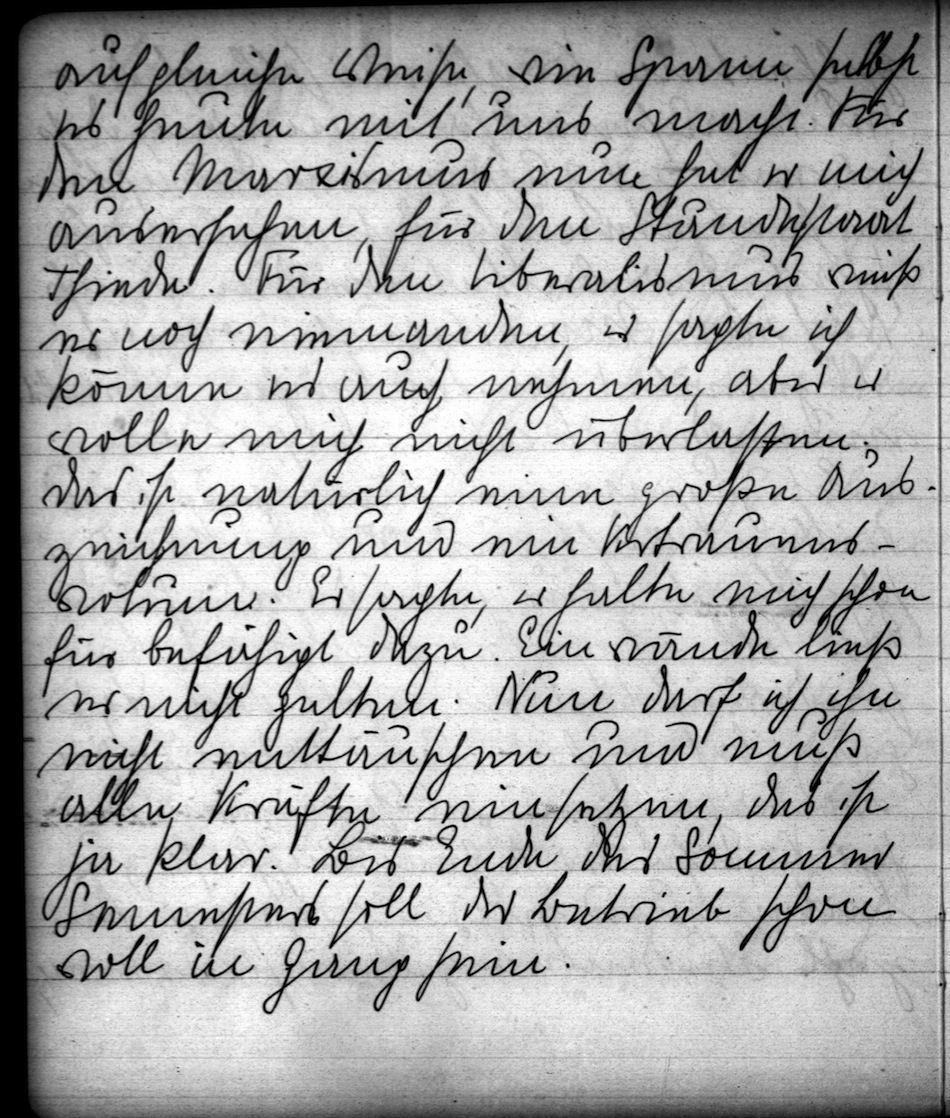 auf gleiche Weise, wie Spann selbst
es heute mit uns macht. Für
den Marxismus nun hat er mich
ausersehen, für den Ständestaat
Thiede. Für den Liberalismus weiß
er noch niemanden, er sagte ich
könne es auch nehmen, aber er
wolle mich nicht überlasten.
Das ist natürlich eine große Aus-
zeichnung und ein Vertrauens-
votum. Er sagte, er halte mich schon
für befähigt dazu. Einwände ließ
er nicht gelten. Nun darf ich ihn
nicht enttäuschen und muß
alle Kräfte einsetzen, das ist
ja klar. Bis Ende des Sommer
Semesters soll der Betrieb schon
voll in Gang sein.